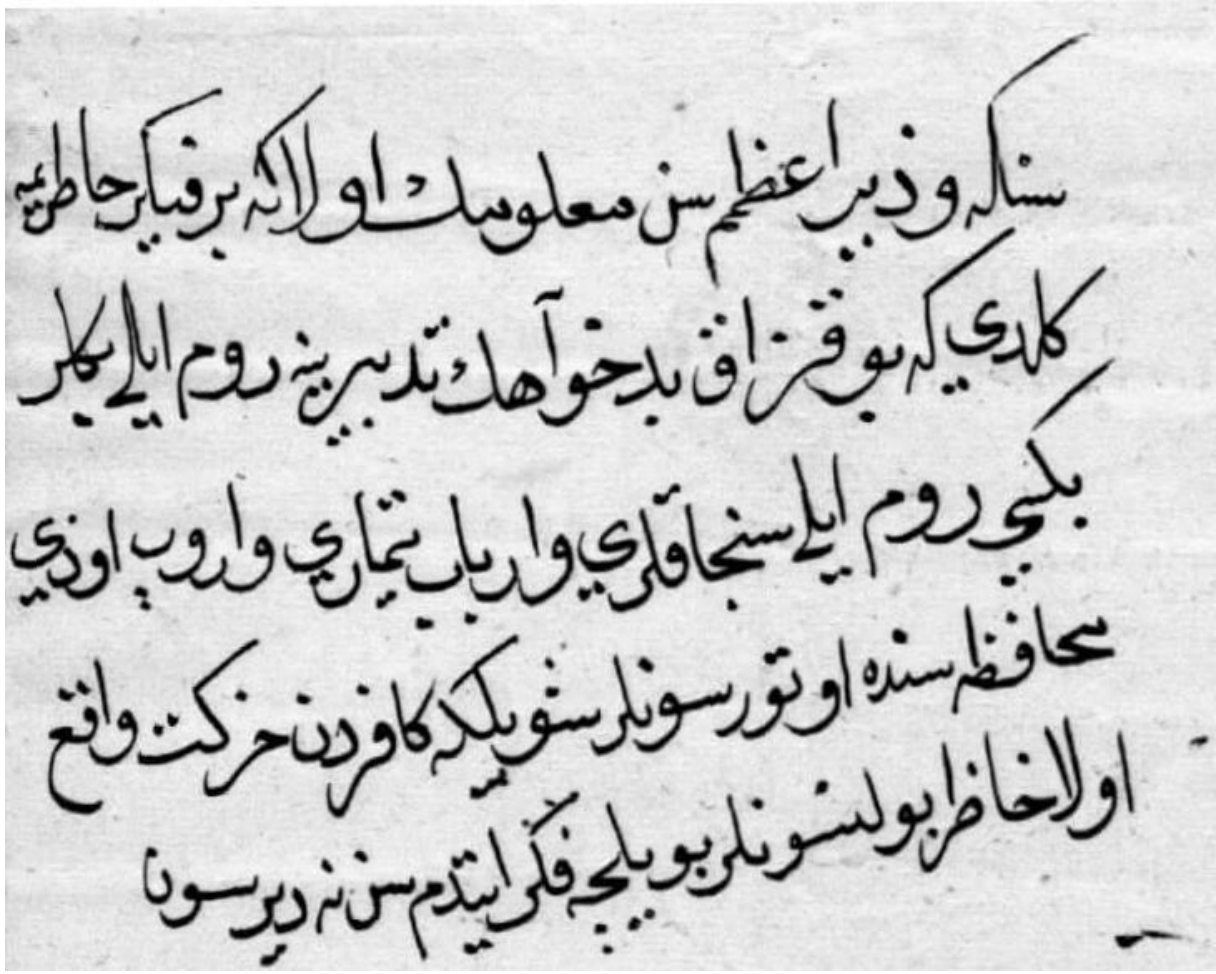 سنكه وزير اعظم سن معلومك اولاكه بر فكر خاطريمه
كلدي كه بو قزاق بدخواهك تدبيرينه روم ايلي بكلر
بكسي روم ايلي سنجاقلري وارباب تيماري واروب اوزي
محافظه سنده اوتورسونلر شويلكه كافردن حركت واقع
اولا حاظر بولنسونلر بويلجه فكر ايتدم سن نه ديرسون